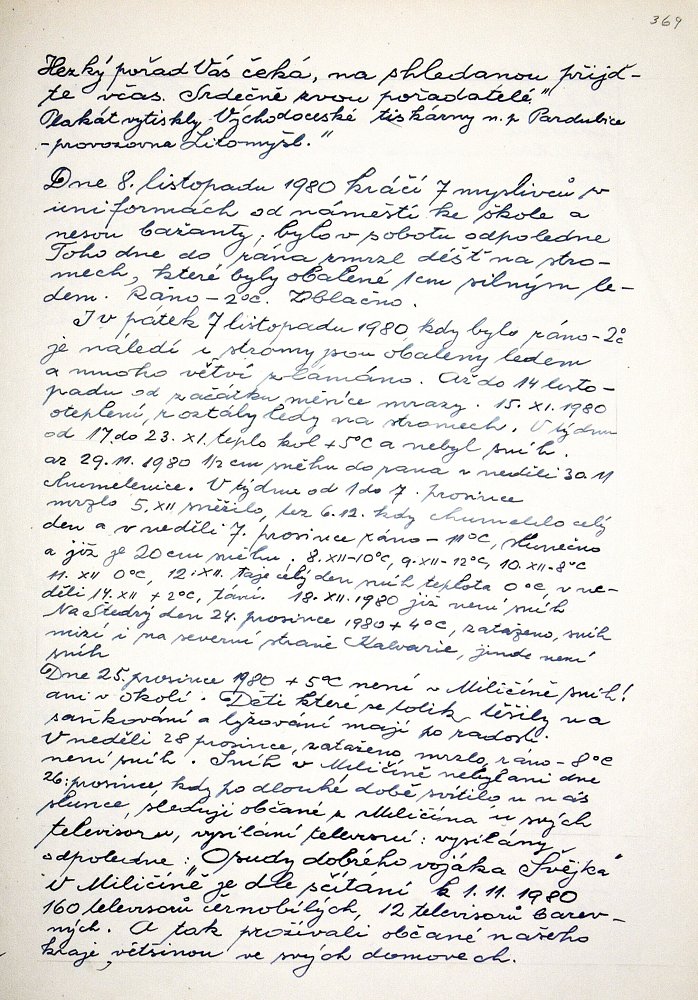 369
Hezký pořad Vás čeká, na shledanou přijď-
te včas. Srdečně zvou pořadatelé."
Plakát vytiskly Východočeské tiskárny n.p Pardubice
- provozovna Litomyšl."
Dne 8. listopadu 1980 kráčí 7 myslivců v
uniformách od náměstí ke škole a
nesou bažanty, bylo v sobotu odpoledne
Toho dne do rána zmrzl déšť na stro-
mech, které byly obalené 1cm silným le-
dem. Ráno - 2°C. Oblačno.
I v pátek 7 listopadu 1980 kdy bylo ráno - 2°C
je náledí i stromy jsou obaleny ledem
a mnoho větví zlámáno. Až do 14 listo-
padu od začátku měsíce mrazy. 15. XI. 1980
oteplení, roztály ledy na stromech. V týdnu
od 17. do 23. XI. teplo kol +5°C a nebyl sníh.
až 29.11. 1980 1/2 cm sněhu do rána v neděli 30.11
chumelenice. V týdnu od 1 do 7. prosince
mrzlo 5. XII sněžilo, též 6.12. kdy chumelilo celý
den a v neděli 7. prosince ráno - 11°C, slunečno
a již je 20 cm sněhu. 8. XII -10°C, 9. XII - 12°C, 10. XII - 8°C
11. XII 0°C, 12. XII. taje celý den sníh teplota 0°C, v ne-
děli 14. XII + 2°C, tání. 18. XII. 1980 již není sníh
Na Štědrý den 24. prosince 1980 + 4°C, zataženo, sníh
mizí i na severní straně Kalvarie, jinde není
sníh
Dne 25. prosince 1980 + 5°C není v Miličíně sníh!
ani v okolí. Děti které se tolik těšily na
saňkování a lyžování mají po radosti.
V neděli 28 prosince, zataženo, mrzlo, ráno - 8°C
není sníh. Sníh v Miličíně nebyl ani dne
26. prosince, kdy po dlouhé době svítilo u nás
slunce, sledují občané z Miličína u svých
televisorů, vysílání televisní: vysílány
odpoledne: Osudy dobrého vojáka Švejka"
V Miličíně je dle sčítání k 1.11. 1980
160 televisorů černobílých, 12 televisorů barev-
ných. A tak prožívali občané našeho
kraje, většinou ve svých domovech.